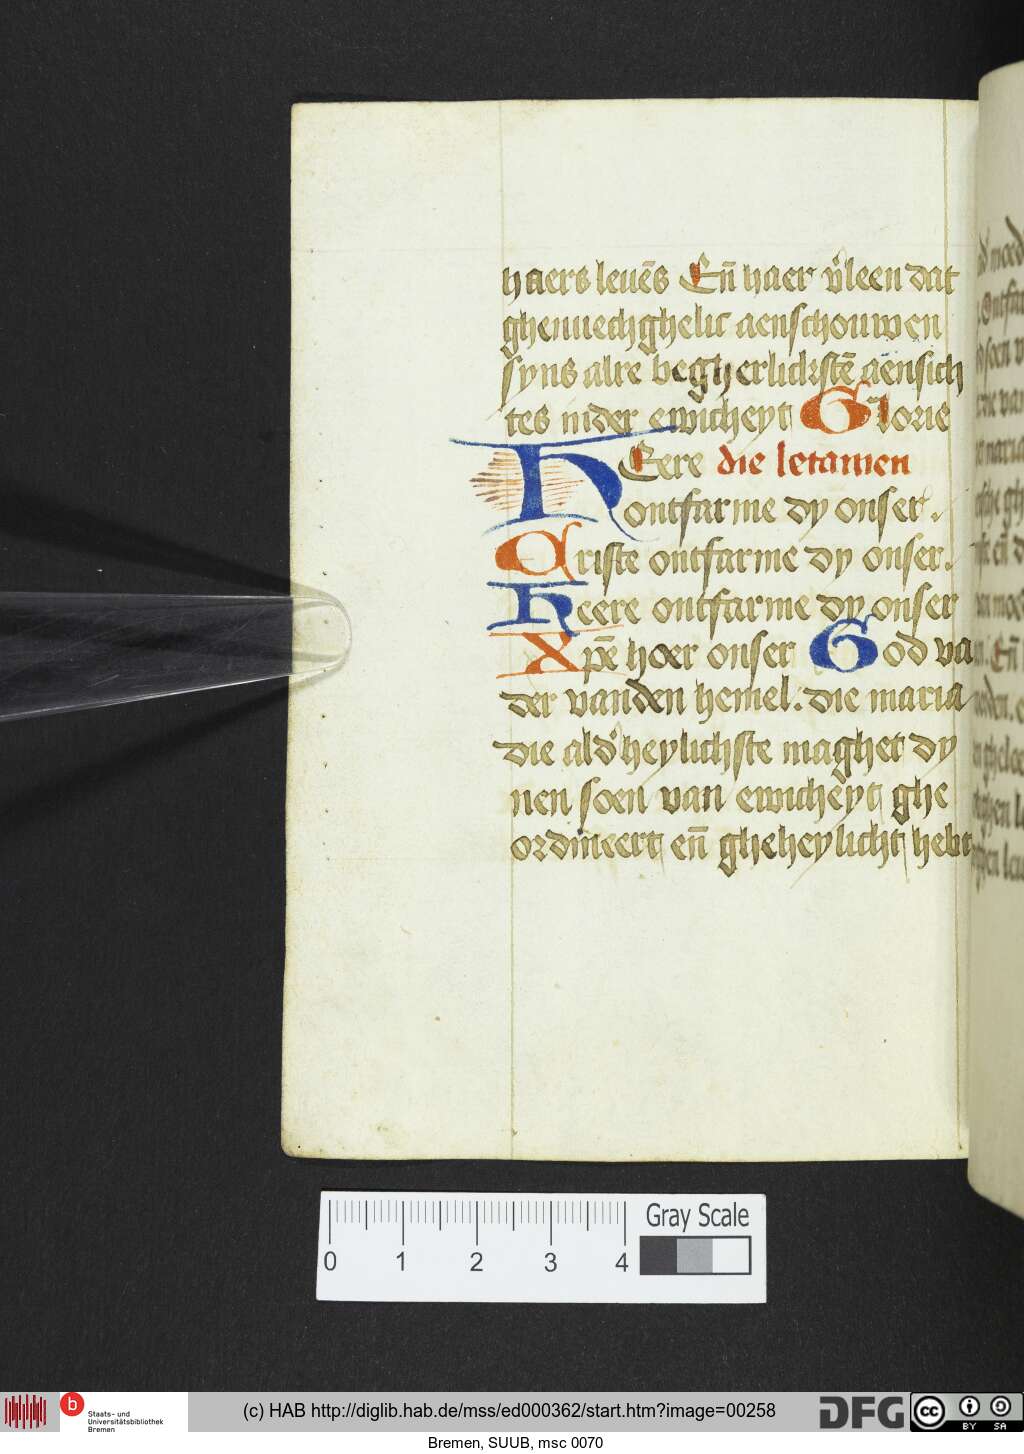 haers leuēs Eñ haer v̉leen dat
ghenuechghelic aenschouwen
syns alre begherlickstē aensich
tes nider ewicheyt Glorie
HEere die letanien
ontfarme dy onser.
Criste ontfarme dy onser.
heere ontfarme dy onser
Xpē hoer onser God va
der vanden hemel. die maria
die ald' heylichste maghet dy
nen soen van ewicheyt ghe
ordineert eñ gheheylicht hebt
0 1 2 3 4
Gray Scale
b Staats- und
Universitätsbibliothek
Bremen
(c) HAB http://diglib.hab.de/mss/ed000362/start.htm?image=00258
DFG
cc BY SA
Bremen, SUUB, msc 0070